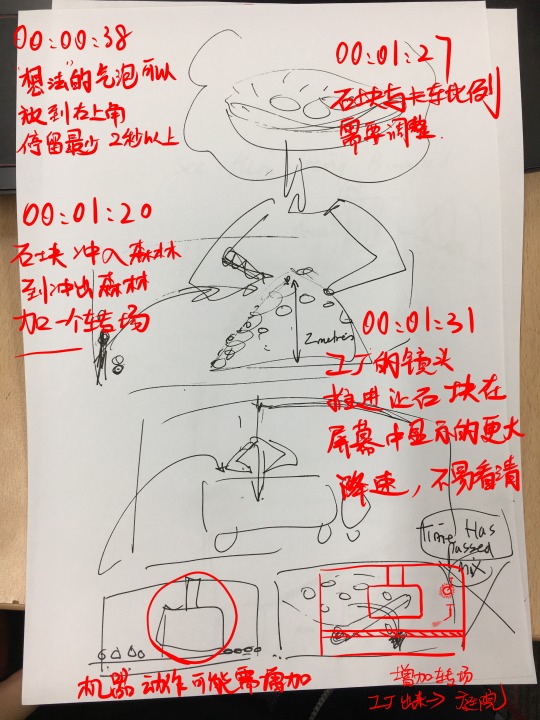 00:00:38
"想法"的气泡可以
放到右上角
停留最少 2秒以上
00:01:27
石块与卡车比例
需要调整
00:01:20
石块冲入森林
到冲出森林
加一个转场
2 metres
00:01:31
工厂的镜头
推进让石块在
屏幕中显示的更大
降速，不易看清
Time Has
Passed
机器动作可能需增加
增加转场
工厂出来→庭院